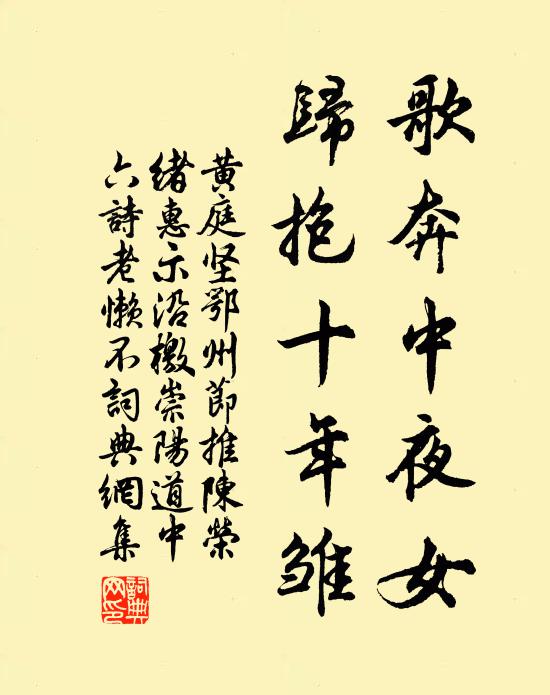 歌奔中夜女
歸抱十年雏
黄庭坚鄂州節推陳榮
緒惠示沿檄崇陽道中
六詩老懒不詞典網集